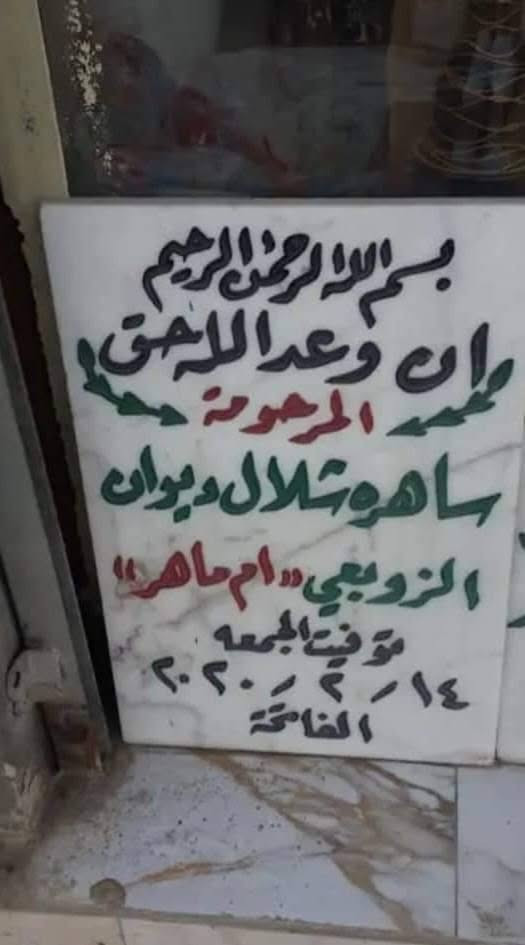 بسم الله الرحمن الرحيم
ان وعد الله حق
المرحومة
ساهره شلال ديوان
الزوبعي "ام ماهر"
توفيت الجمعه
١٤ / ٢ / ٢٠٢٠
الفاتحة